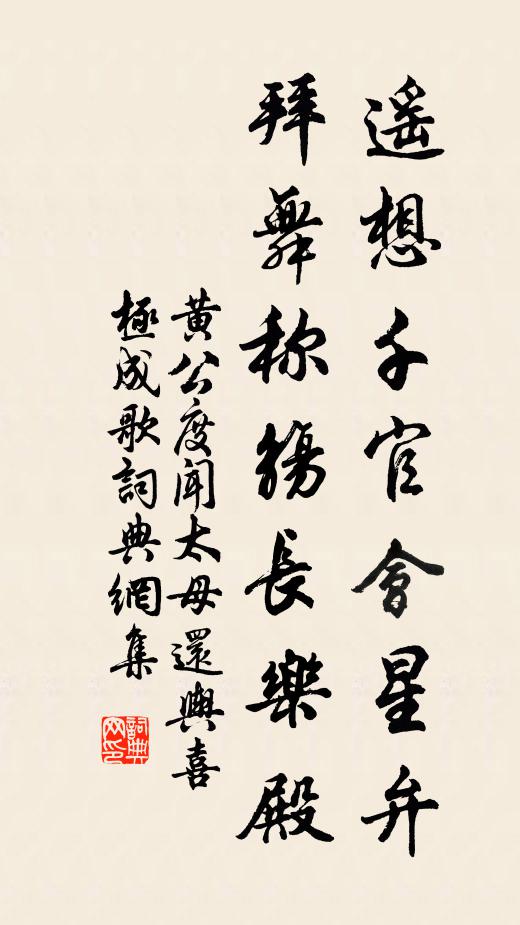 遥想千官會星弁
拜舞称觴長樂殿
黄公度聞太母還輿喜
極成歌詞典網集
詞典网印